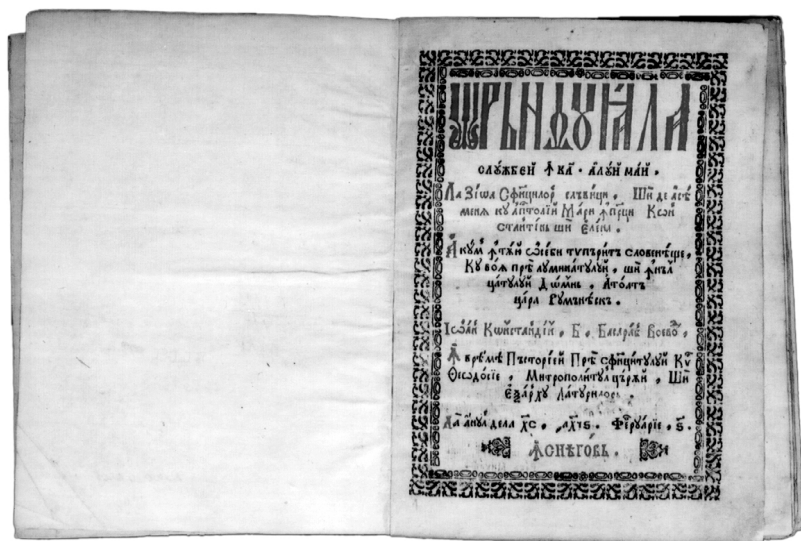 ѠРЪНДꙊꙖЛА
слꙋжбеи ꙟ ка҃ · алꙋи маи ·
Ла Зіѡа Сфн҃цилор слъвици · Ши де асѣ
менѣ кꙋ апⷭ҇толіи Мари ꙟпⷬ҇ци Кѡн
стантінь ши Еленⷶ ·
Акꙋм ꙟтѫи ѡсеби тѵпърит словенѣще ·
Кꙋ воѧ прѣ лꙋминатꙋлꙋи · ши ꙟнъл
цатꙋлꙋи Дѡмнь · Атоатъ
цара Рꙋмънѣскъ ·
Іѡан Кѡнстандін · Б · Басараб Воевоⷣ ·
ꙟ врѣмѣ Пъсторіеи Прѣ сфинцитꙋлꙋи Кѵⷬ
Ѳеѡдосіе · Митрополитꙋл цържи · Ши
Еѯархꙋ Латꙋрилорь ·
Ла анꙋл дела хс҃ · ҂ахч҃ѕ · Феврꙋаріе · ѕ҃ ·
ꙟснѣговь ·